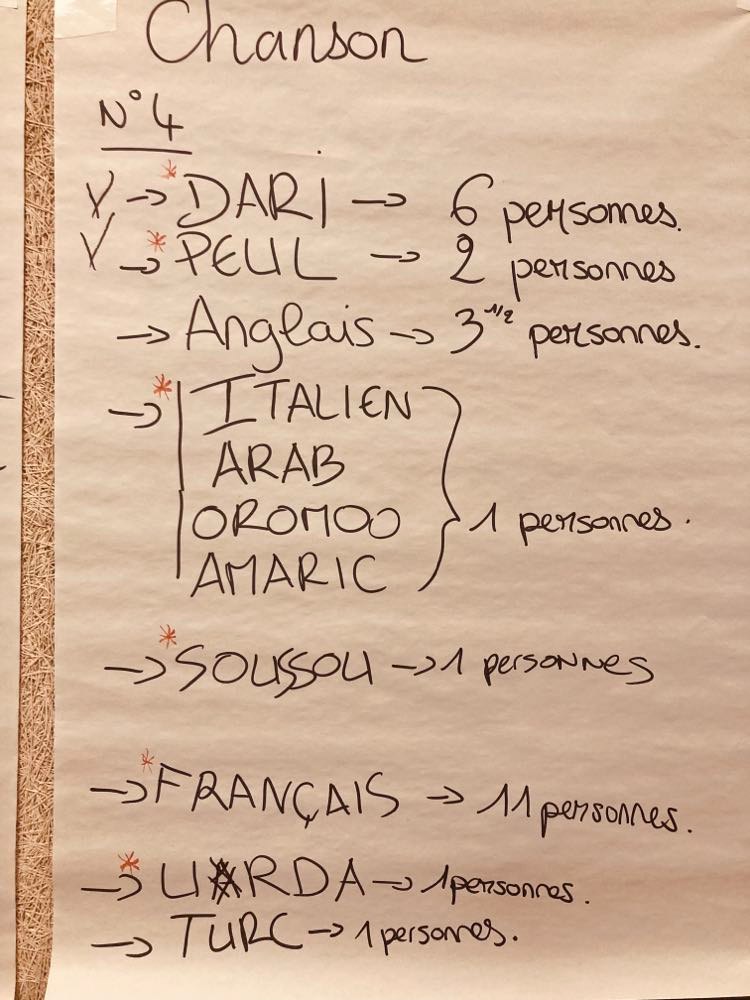 Chanson
N°4
V → * DARI → 6 personnes.
V → * PEUL → 2 personnes
→ Anglais → 3 1/2 personnes.
→ * ITALIEN
ARAB
OROMOO
AMARIC
} 1 personnes.
→ * SOUSSOU → 1 personnes
→ * FRANÇAIS → 11 personnes.
→ * URDA → 1 personnes.
→ TURC → 1 personnes.